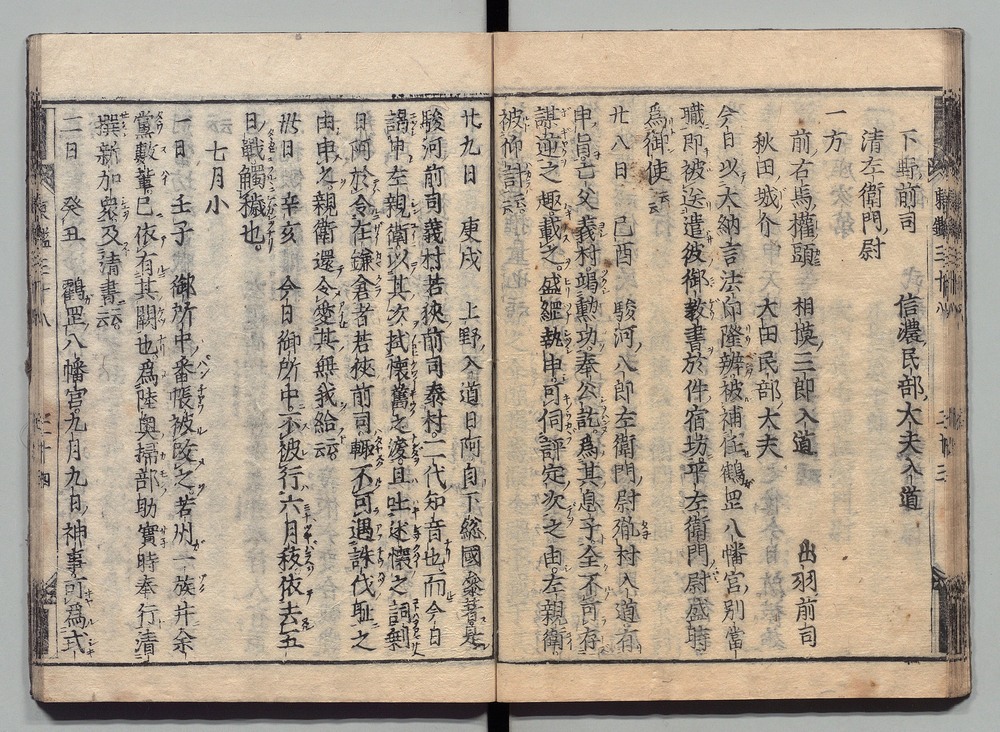 下野前司　　信濃民部大夫入道
清左衛門尉
一方
前右馬權頭　相摸三郎入道　出羽前司
秋田城介　大田民部大夫
今日以大納言法印隆辨被補任鶴岡八幡宮別當
職即被送遣彼御教書於件宿坊平左衛門尉盛時
爲御使云云
廿八日　己酉　駿河八郎左衛門尉胤村入道有
申旨亡父義村竭勲功奉公訖爲其息子全不可存
謀逆之趣載之盛經執申可伺評定次之由左親衛
被仰請云云
廿九日　庚戌　上野入道日阿自下総國参著是
駿河前司義村若狹前司泰村二代知音也而今日
謁申左親衛以其次拭懷舊之涙且吐述懷之詞剰
日阿於令在鎌倉者若狹前司輙不可遇誅伐耻之
由申之親衛還令愛其無我給云云
卅日　辛亥　今日御所中不被行六月秡依去五
日戰觸穢也
七月小
一日　壬子　御所中番帳被改之若州一族并余
黨數輩已依有其闕也爲陸奥掃部助實時奉行清
撰新加衆及清書云云
二日　癸丑　鶴岡八幡宮九月九日神事可爲式
東鑑三十八
三十四
東鑑三十八